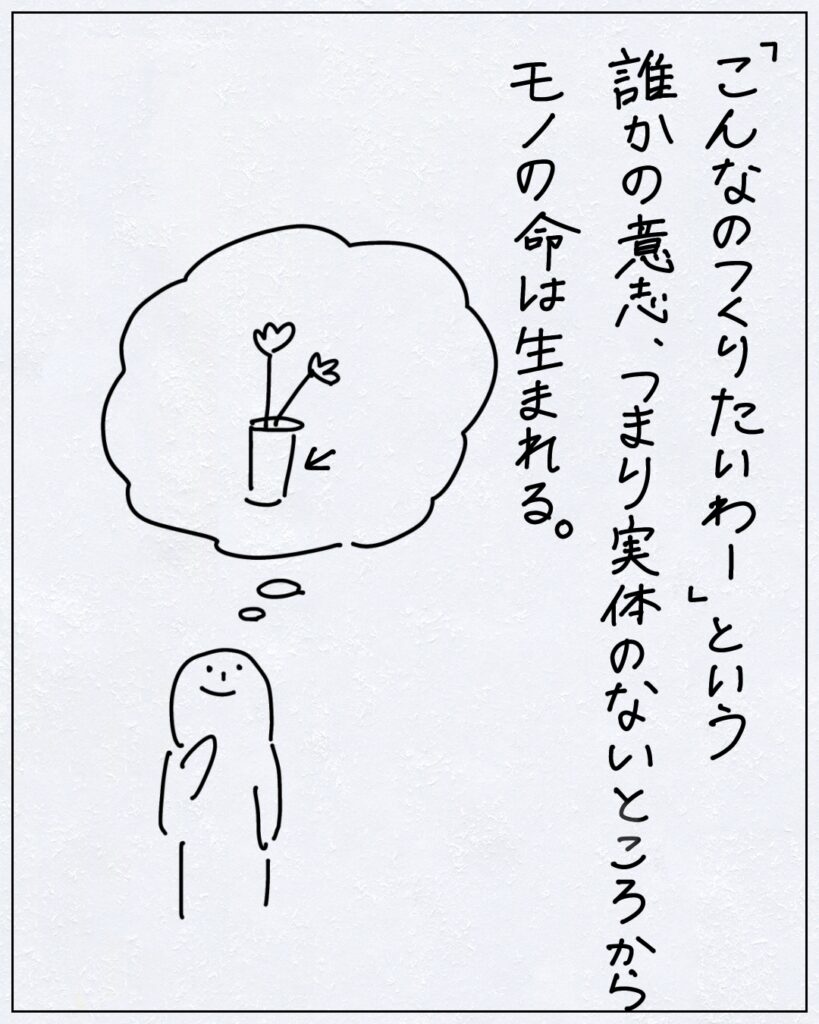 「こんなのつくりたいわー」という
誰かの意志、つまり実体のないところから
モノの命は生まれる。